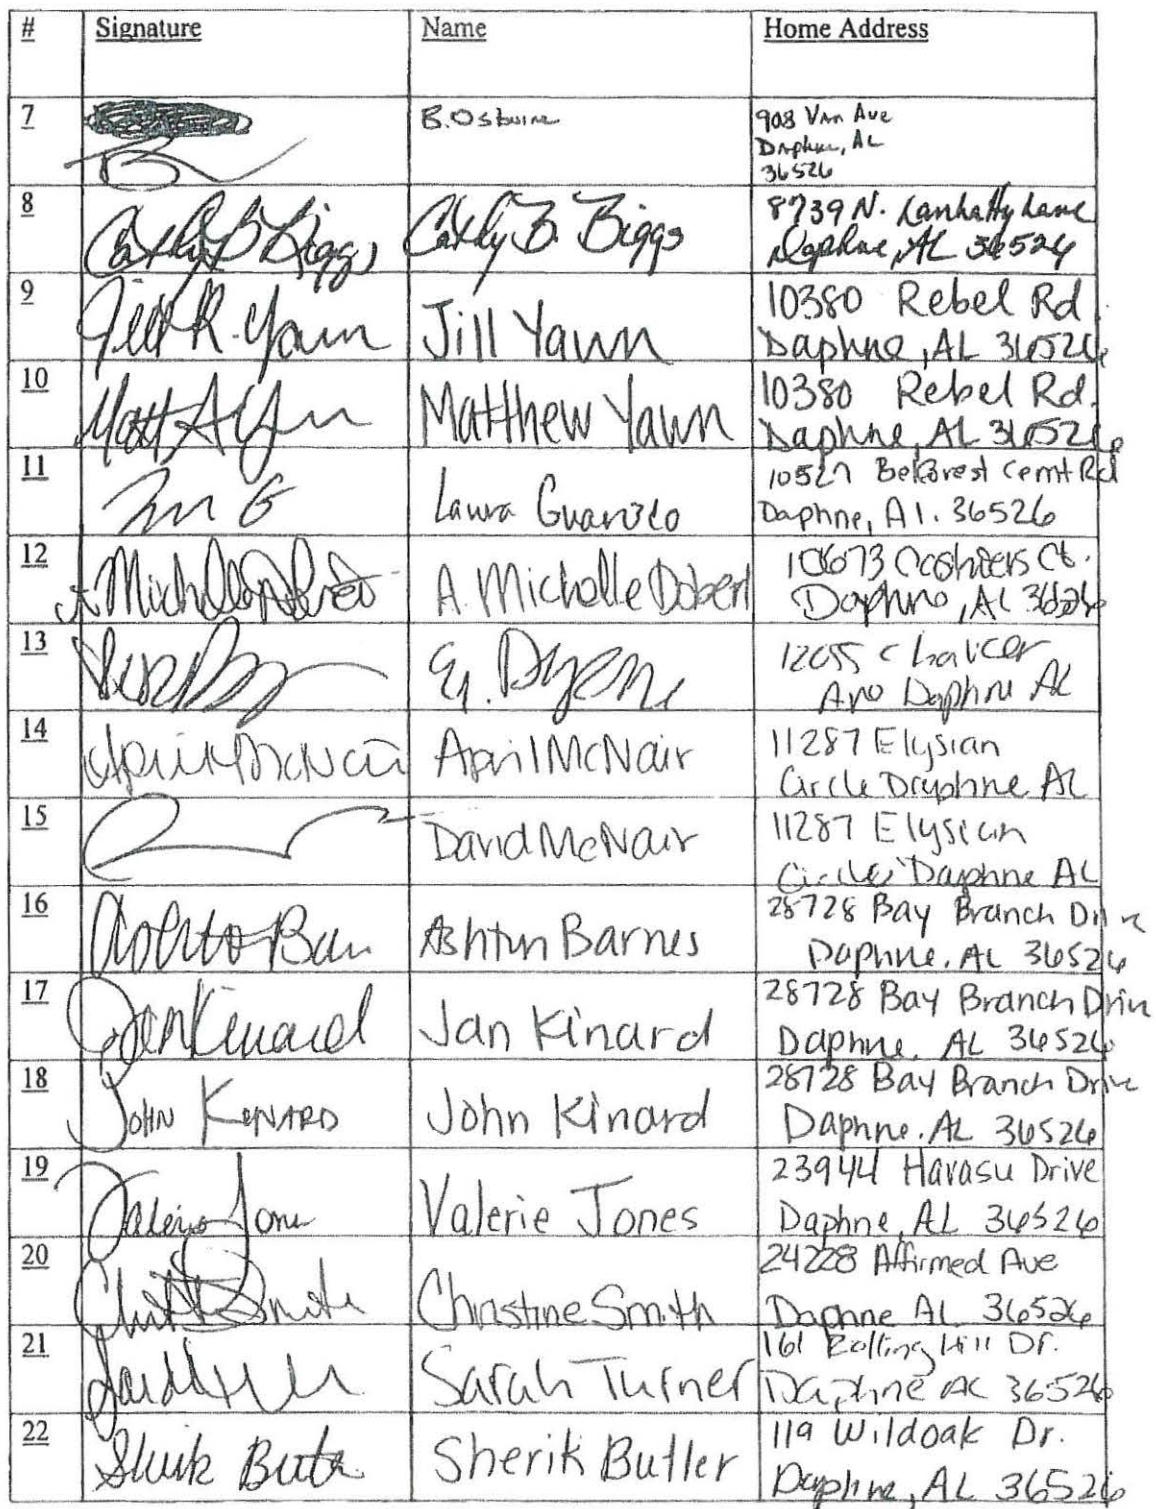 # Signature Name Home Address
7 B. Osburne 908 Van Ave
Daphne, AL
36526
8 Cathy B Biggs Cathy B. Biggs 8739 N. Lamhatty Lane
Daphne, AL 36526
9 Jill R. Yawn Jill Yawn 10380 Rebel Rd.
Daphne, AL 36526
10 Matthew Yawn 10380 Rebel Rd.
Daphne, AL 36526
11 Laura 10527 Belforest Cemt Rd
Daphne, Al. 36526
12 A. Michelle A. Michelle Dobert Ct.
Daphne, AL 36526
13 Chaucer
Daphne AL
14 April McNair April McNair 11287 Elysian
Circle Daphne AL
15 David McNair 11287 Elysian
Circle Daphne AL
16 Ashton Barnes 28728 Bay Branch Drive
Daphne, AL 36526
17 Jan Kinard Jan Kinard 28728 Bay Branch Drive
Daphne, AL 36526
18 John Kinard John Kinard 28728 Bay Branch Drive
Daphne, AL 36526
19 Valerie Jones Valerie Jones 23944 Havasu Drive
Daphne, AL 36526
20 Smith Christine Smith 24228 Affirmed Ave
Daphne AL 36526
21 Sarah Turner 161 Rolling Hill Dr.
Daphne AL 36526
22 Sherik Butler 119 Wildoak Dr.
Daphne, AL 36526